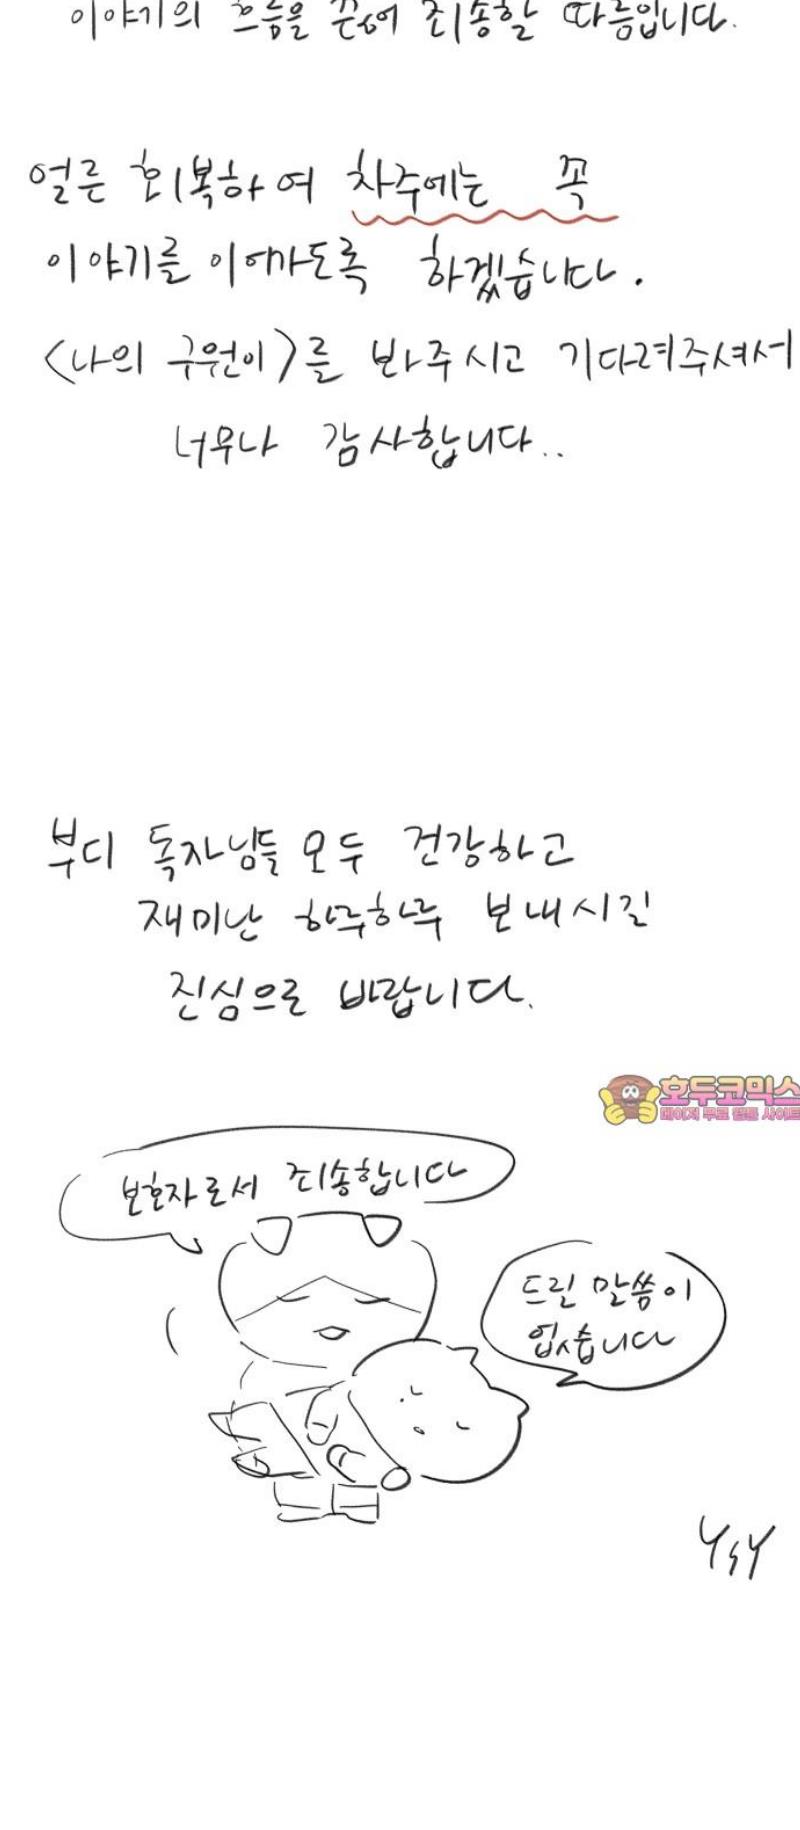 이야기의 흐름을 끊어 죄송할 따름입니다.
얼른 회복하여 차주에는 꼭
이야기를 이어가도록 하겠습니다.
<나의 구원이>를 봐주시고 기다려주셔서
너무나 감사합니다..
부디 독자님들 모두 건강하고
재미난 하루하루 보내시길
진심으로 바랍니다.
호두코믹스
페이지 무료 웹툰 사이트
보호자로서 죄송합니다
드릴 말씀이
없습니다
YSY